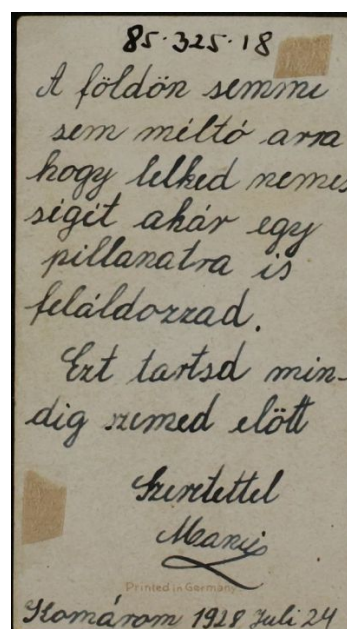 85·325·18
A földön semmi
sem méltó arra
hogy lelked nemes
ségit akár egy
pillanatra is
feláldozzad.
Ezt tartsd min-
dig szemed előtt
Szeretettel
Printed in Germany.
Komárom 1928 Juli 24